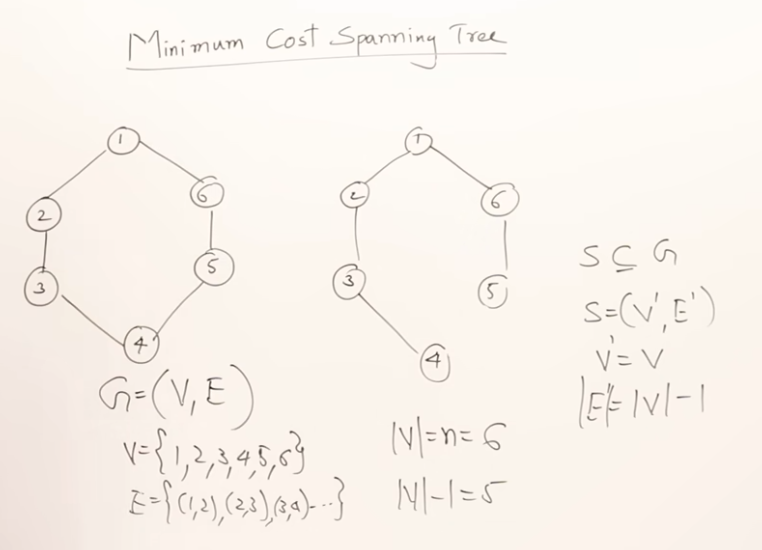 Minimum Cost Spanning Tree
1
2
6
3
5
4
1
2
6
3
5
4
G=(V,E)
V={1,2,3,4,5,6}
E={(1,2),(2,3),(3,4)---}
|V|=n=6
|V|-1=5
S⊆G
S=(V',E')
V'=V
|E'|=|V|-1